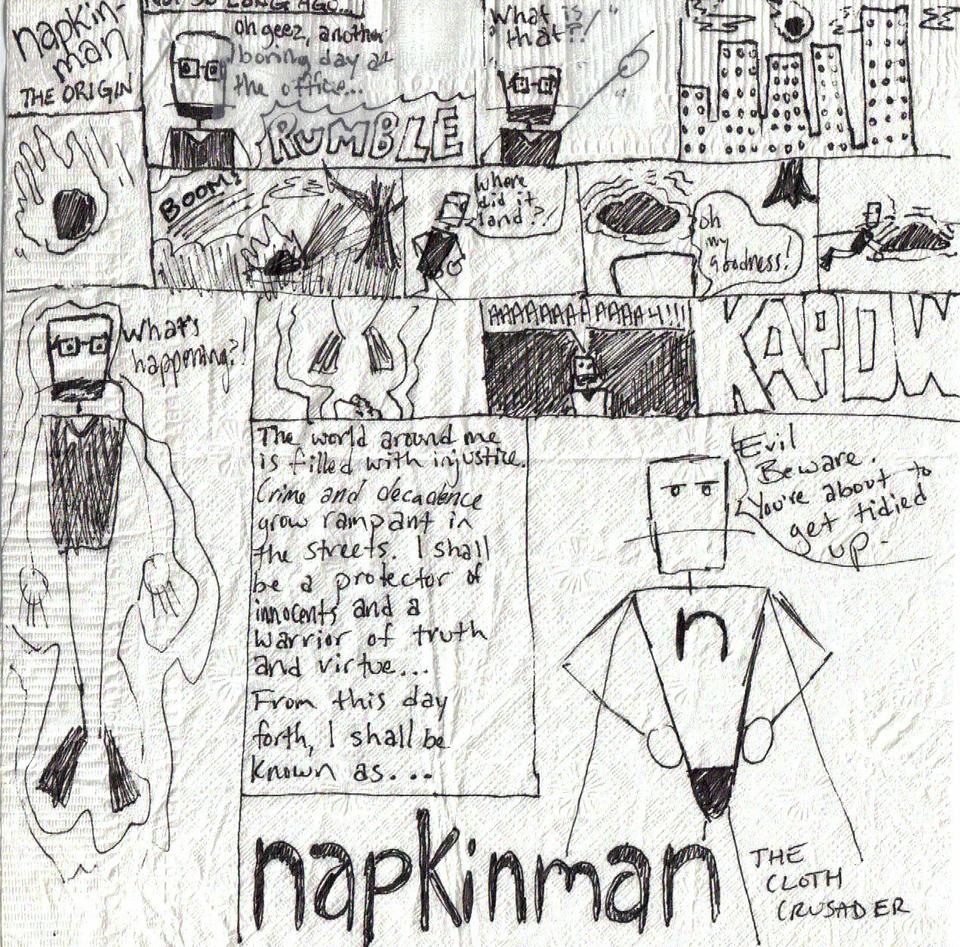 napkin-
man
THE ORIGIN
NOT SO LONG AGO...
oh geez, another
boring day at
the office...
RUMBLE
What is
that?!
BOOM!
Where
did it
land?!
oh
my
goodness!
What's
happening?!
AAAAAAAHAAAAH!!!!
KAPOW
The world around me
is filled with injustice.
Crime and decadence
grow rampant in
the streets. I shall
be a protector of
innocents and a
warrior of truth
and virtue...
From this day
forth, I shall be
known as...
Evil
Beware.
You're about to
get tidied
up.
n
napkinman
THE
CLOTH
CRUSADER